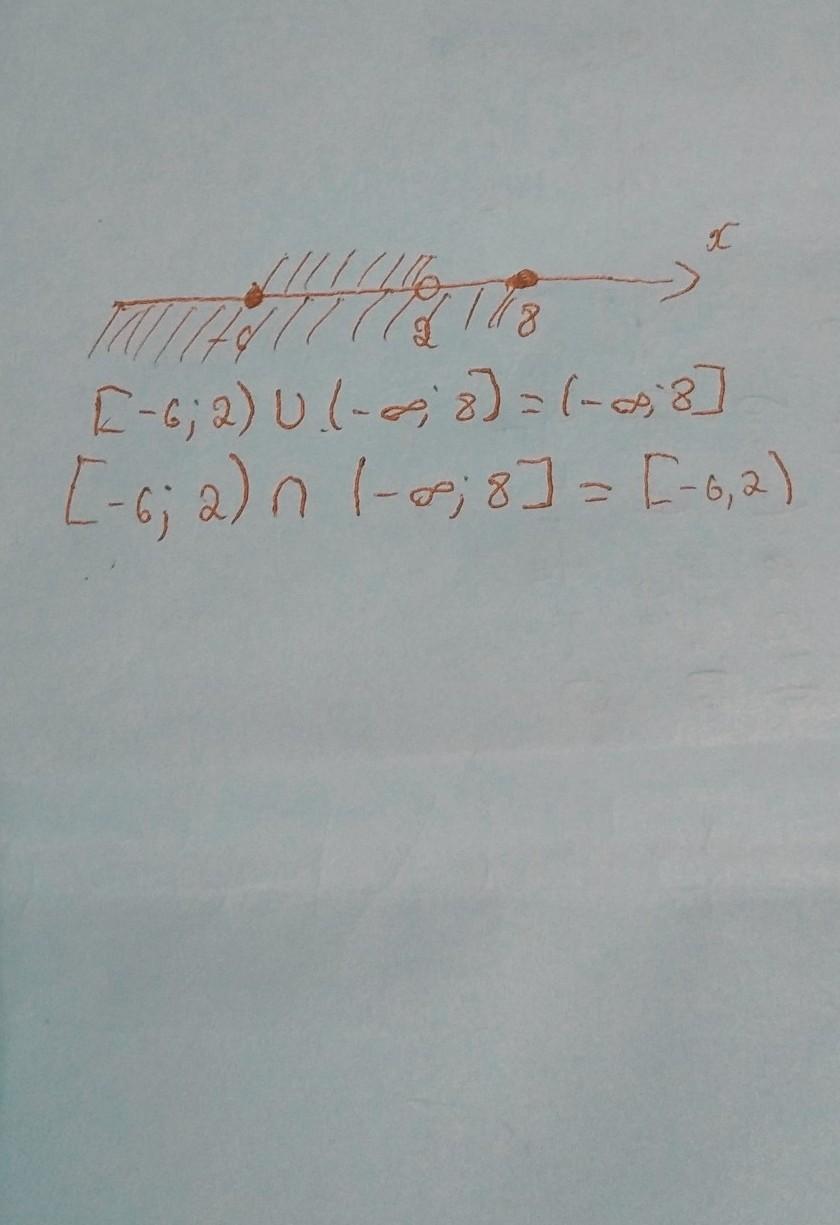 x
-6 2 8
[-6; 2) ∪ (-∞; 8] = (-∞; 8]
[-6; 2) ∩ (-∞; 8] = [-6, 2)